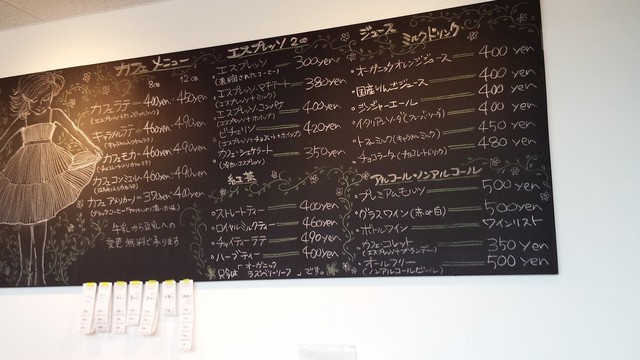 カフェメニュー
8oz 12oz
カフェラテ 400yen 450yen
キャラメルラテ 460yen 490yen
カフェモカ 460yen 490yen
カフェコンミエル 460yen 490yen
カフェアメリカーノ 370yen 400yen
牛乳から豆乳への
変更無料で承ります
エスプレッソ 2oz
エスプレッソ 300yen
エスプレッソ・マキアート 380yen
(エスプレッソ+ミルク)
エスプレッソ・コンパナ 400yen
(エスプレッソ+ホイップ)
ビチェリン 420yen
(エスプレッソ+チョコレート+ホイップ)
カフェ・シェケラート 350yen
(冷たいエスプレッソ)
紅茶
・ストレートティー 400yen
・ロイヤルミルクティー 460yen
・チャイティーラテ 490yen
・ハーブティー 400yen
只今は「オーガニック
ラズベリーリーフ」です。
ジュース ミルクドリンク
・オーガニックオレンジジュース 400yen
・国産りんごジュース 400yen
・ジンジャーエール 400yen
・イタリアンソーダ 450yen
・トフィーミルク 480yen
・チョコラータ(チョコレートドリンク)
アルコール・ノンアルコール
・プレミアムモルツ 500yen
・グラスワイン(赤or白) 500yen
・ボトルワイン ワインリスト
・カフェコレット 350yen
(エスプレッソ+ブランデー)
・オールフリー 500yen
(ノンアルコールビール)